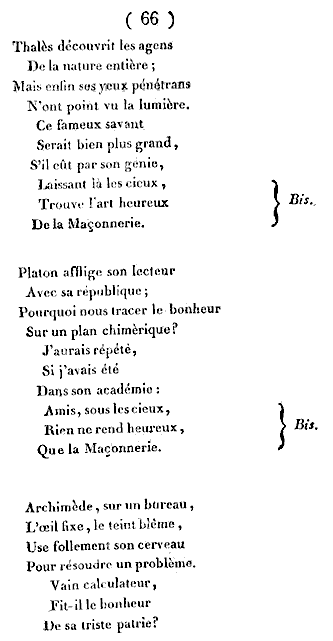 ( 66 )
Thalès découvrit les agens
De la nature entière ;
Mais enfin ses yeux pénétrans
N'ont point vu la lumière.
Ce fameux savant
Serait bien plus grand,
S'il eût par son génie,
Laissant là les cieux,
Trouve l'art heureux
De la Maçonnerie.
} Bis.
Platon afflige son lecteur
Avec sa république ;
Pourquoi nous tracer le bonheur
Sur un plan chimèrique?
J'aurais répété,
Si j'avais été
Dans son académie :
Amis, sous les cieux,
Rien ne rend heureux,
Que la Maçonnerie.
} Bis.
Archimède, sur un bureau,
L'œil fixe, le teint blême,
Use follement son cerveau
Pour résoudre un problème.
Vain calculateur,
Fit-il le bonheur
De sa triste patrie?